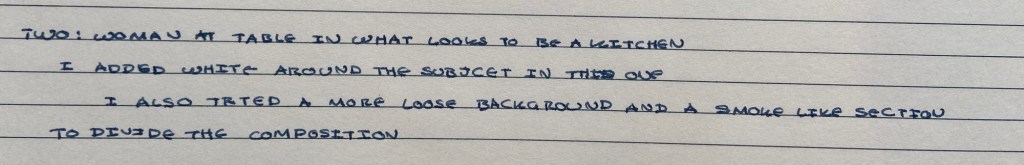 TWO: WOMAN AT TABLE IN WHAT LOOKS TO BE A KITCHEN
I ADDED WHITE AROUND THE SUBJCET IN THIS ONE
I ALSO TRTED A MORE LOOSE BACKGROUND AND A SMOKE LIKE SECTION
TO DIVIDE THE COMPOSITION